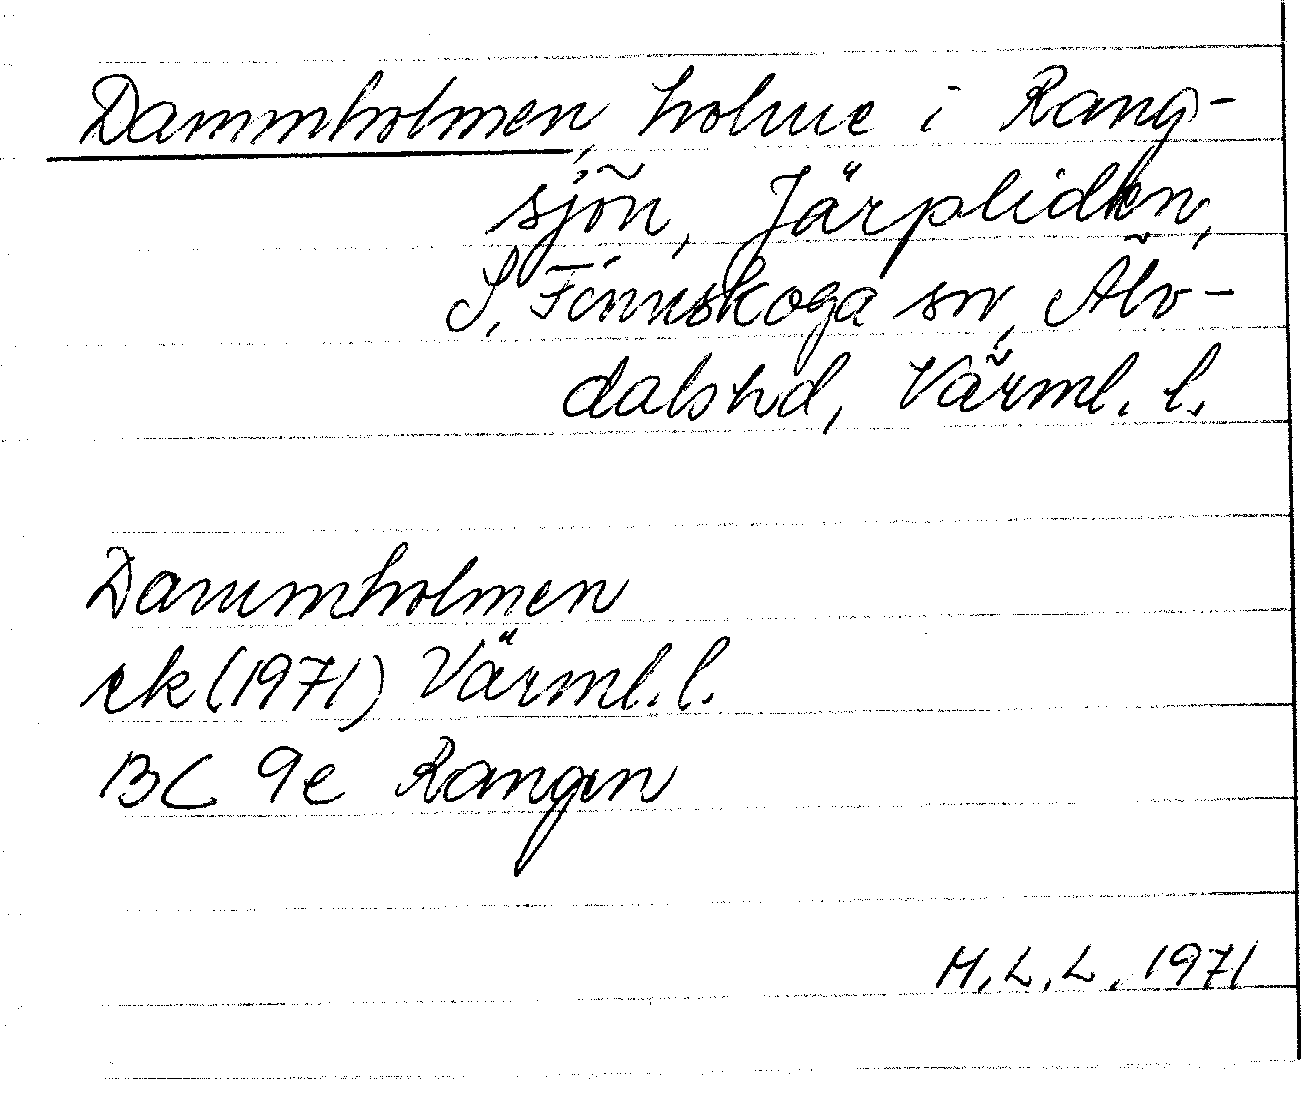 Dammholmen, holme i Rang-
sjön, Järpliden,
S. Finnskoga sn, Älv-
dals hd, Värml. l.
Dammholmen
ek (1971) Värml. l.
BC 9e Rangen
M.L.L. 1971